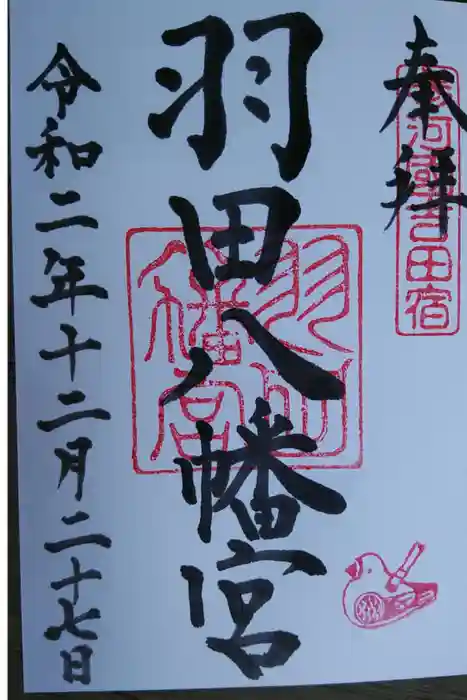 奉拝
羽田八幡宮
羽田八幡宮
令和二年十二月二十七日